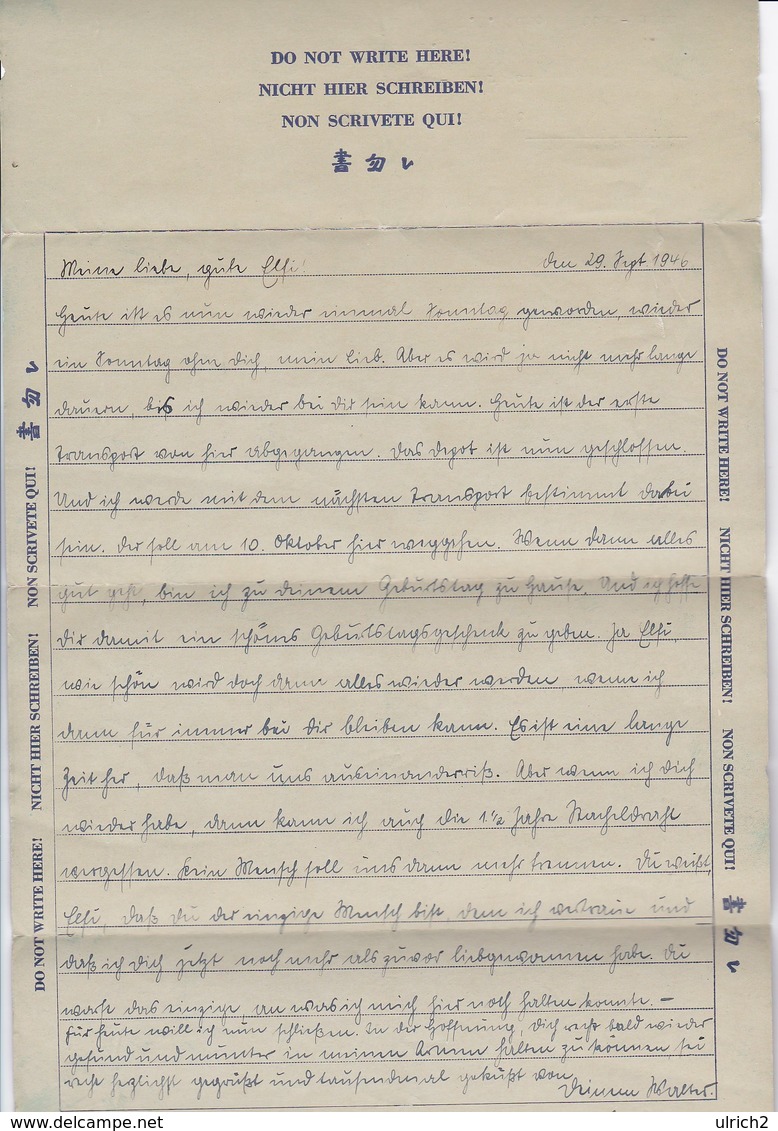 DO NOT WRITE HERE!
NICHT HIER SCHREIBEN!
NON SCRIVETE QUI!
書勿レ
Meine liebe, gute Elfi!
den 29. Sept. 1946
Heute ist es nun wieder einmal Sonntag geworden, wieder
ein Sonntag ohne Dich, mein Lieb. Aber es wird ja nicht mehr lange
dauern, bis ich wieder bei Dir sein kann. Heute ist der erste
Transport von hier abgegangen. Das Depot ist nun geschlossen.
Und ich werde mit dem nächsten Transport bestimmt dabei
sein. Der soll am 10. Oktober hier weggehen. Wenn dann alles
gut geht, bin ich zu Deinem Geburtstag zu Hause. Und ich hoffe
Dir damit ein schönes Geburtstagsgeschenk zu geben. Ja Elfi,
wie schön wird doch dann alles wieder werden, wenn ich
dann für immer bei Dir bleiben kann. Es ist eine lange
Zeit her, daß man uns auseinanderriß. Aber wenn ich Dich
wieder habe, dann kann ich auch die 1½ Jahre Stacheldraht
vergessen. Kein Mensch soll uns dann mehr trennen. Du weißt,
Elfi, daß Du der einzige Mensch bist, dem ich vertraue und
daß ich Dich jetzt noch mehr als zuvor liebgewonnen habe. Du
warst das einzige, an was ich mich hier noch halten konnte. —
Für heute will ich nun schließen. In der Hoffnung, Dich recht bald wieder
gesund und munter in meinen Armen halten zu können sei
recht herzlichst gegrüßt und tausendmal geküßt von
Deinem Walter.
DO NOT WRITE HERE! NICHT HIER SCHREIBEN! NON SCRIVETE QUI! 書勿レ
DO NOT WRITE HERE! NICHT HIER SCHREIBEN! NON SCRIVETE QUI! 書勿レ
ulrich2